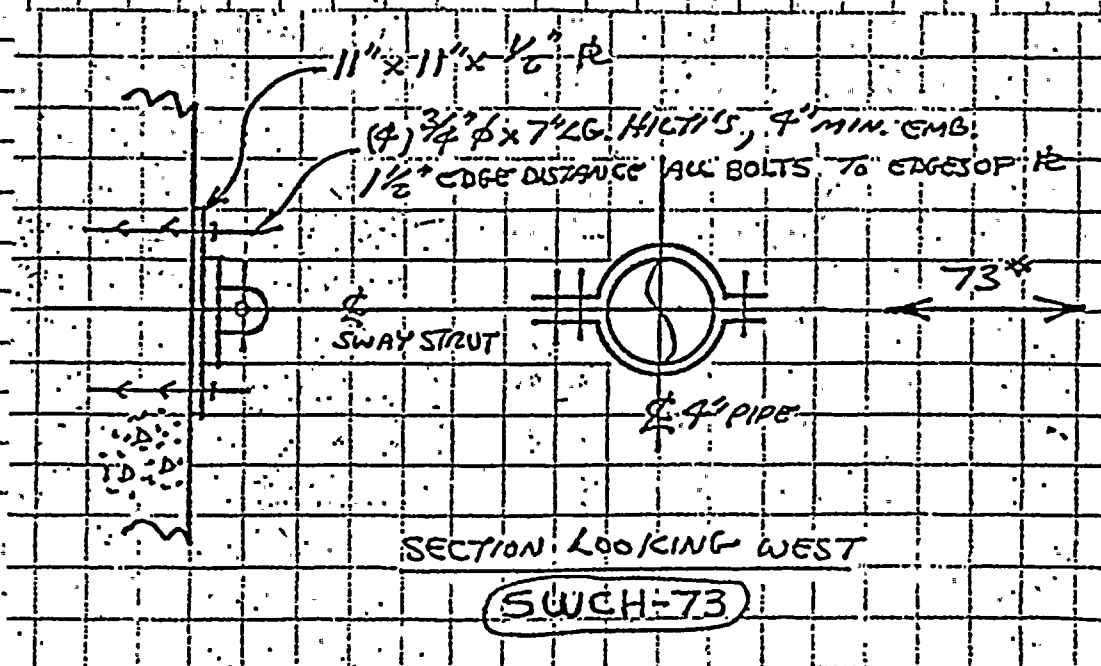 11" x 11" x 1/2" ℞
(4) 3/4" ϕ x 7" LG. HILTI'S, 4" MIN. EMB.
1 1/2" EDGE DISTANCE ALL BOLTS TO EDGES OF ℞
73#
℄
SWAY STRUT
℄ 4" PIPE
SECTION LOOKING WEST
SWCH-73